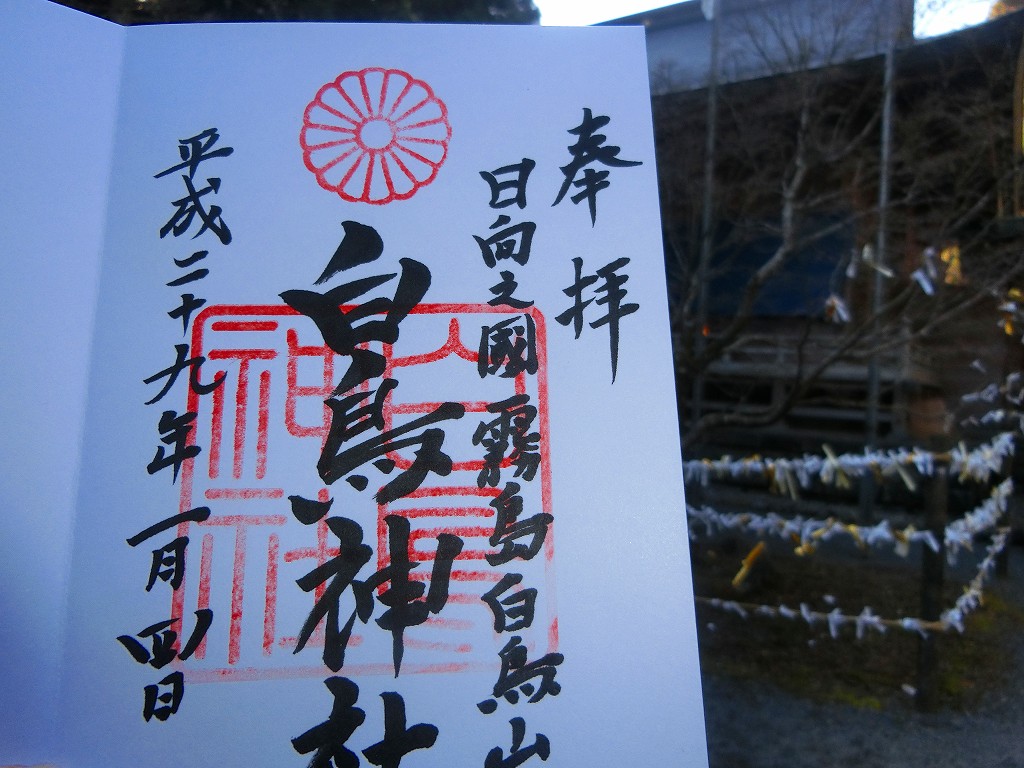 奉拝
日向之國霧島白鳥山
白鳥神社
平成二十九年一月四日